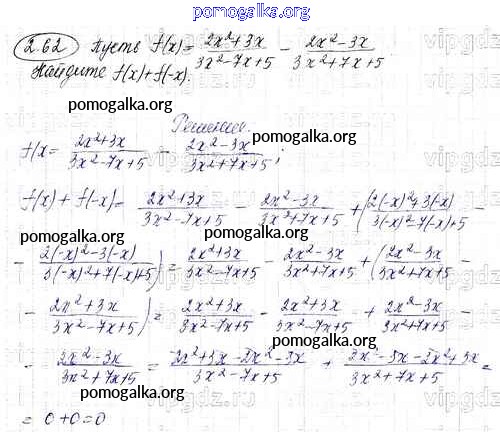 pomogalka.org
2.62 Пусть f(x) = (2x²+3x)/(3x²-7x+5) - (2x²-3x)/(3x²+7x+5)
Найдите f(x)+f(-x).
pomogalka.org
Решение.
f(x = (2x²+3x)/(3x²-7x+5) - (2x²-3x)/(3x²+7x+5);
pomogalka.org
f(x) + f(-x) = (2x²+3x)/(3x²-7x+5) - (2x²-3x)/(3x²+7x+5) + ((2(-x)²+3(-x))/(3(-x)²-7(-x)+5) -
pomogalka.org
- (2(-x)²-3(-x))/(3(-x)²+7(-x)+5)) = (2x²+3x)/(3x²-7x+5) - (2x²-3x)/(3x²+7x+5) + ((2x²-3x)/(3x²+7x+5) -
pomogalka.org
- (2x²+3x)/(3x²-7x+5)) = (2x²+3x)/(3x²-7x+5) - (2x²+3x)/(3x²-7x+5) + (2x²-3x)/(3x²+7x+5) -
pomogalka.org
- (2x²-3x)/(3x²+7x+5) = (2x²+3x-2x²-3x)/(3x²-7x+5) + (2x²-3x-2x²+3x)/(3x²+7x+5) =
pomogalka.org
= 0+0=0